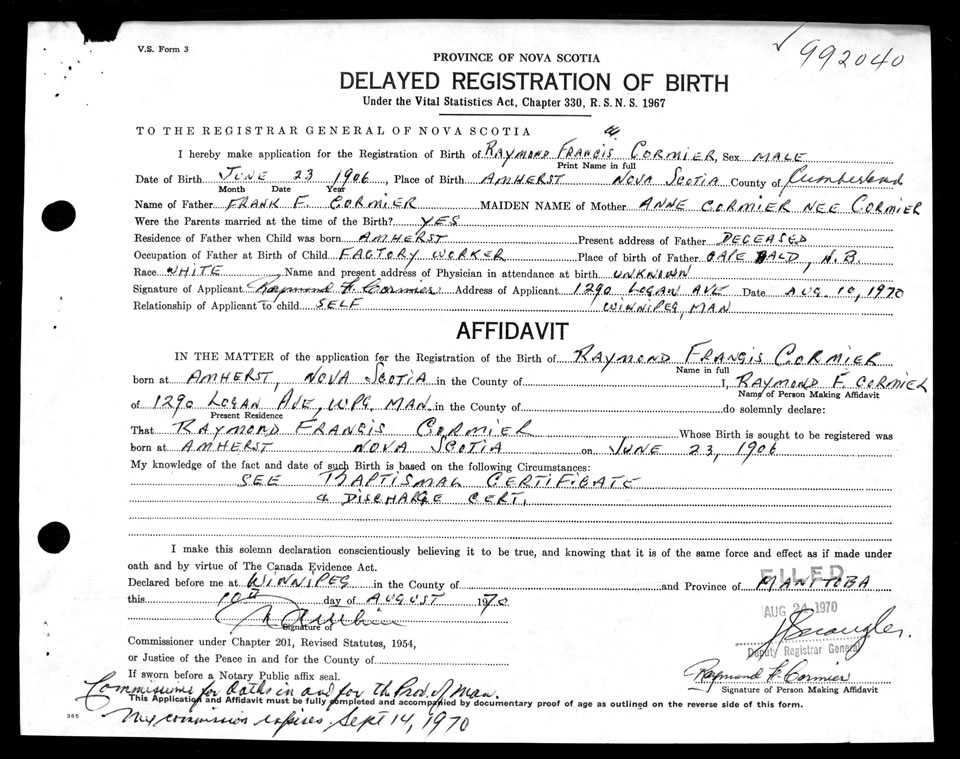 V.S. Form 3
✓ 992040
PROVINCE OF NOVA SCOTIA
DELAYED REGISTRATION OF BIRTH
Under the Vital Statistics Act, Chapter 330, R.S.N.S. 1967
TO THE REGISTRAR GENERAL OF NOVA SCOTIA
I hereby make application for the Registration of Birth of RAYMOND FRANCIS CORMIER, Sex MALE
Print Name in full
Date of Birth JUNE 23 1906, Place of Birth AMHERST NOVA SCOTIA County of Cumberland
Month Date Year
Name of Father FRANK F. CORMIER MAIDEN NAME of Mother ANNE CORMIER NEE CORMIER
Were the Parents married at the time of the Birth? YES
Residence of Father when Child was born AMHERST Present address of Father DECEASED
Occupation of Father at Birth of Child FACTORY WORKER Place of birth of Father CAPE BALD, N.B.
Race WHITE Name and present address of Physician in attendance at birth UNKNOWN
Signature of Applicant Raymond F. Cormier Address of Applicant 1290 LOGAN AVE Date AUG. 10, 1970
Relationship of Applicant to child SELF WINNIPEG, MAN
AFFIDAVIT
IN THE MATTER of the application for the Registration of the Birth of RAYMOND FRANCIS CORMIER
Name in full
born at AMHERST, NOVA SCOTIA in the County of I, RAYMOND F. CORMIER
Name of Person Making Affidavit
of 1290 LOGAN AVE, WPG. MAN. in the County of do solemnly declare:
Present Residence
That RAYMOND FRANCIS CORMIER Whose Birth is sought to be registered was
born at AMHERST NOVA SCOTIA on JUNE 23, 1906
My knowledge of the fact and date of such Birth is based on the following Circumstances:
SEE BAPTISMAL CERTIFICATE
& DISCHARGE CERT.
I make this solemn declaration conscientiously believing it to be true, and knowing that it is of the same force and effect as if made under
oath and by virtue of The Canada Evidence Act.
FILED
Declared before me at WINNIPEG in the County of and Province of MANITOBA
this 10th day of AUGUST 1970
AUG 24 1970
Signature of
Deputy Registrar General
Commissioner under Chapter 201, Revised Statutes, 1954,
or Justice of the Peace in and for the County of
Raymond F. Cormier
If sworn before a Notary Public affix seal.
Signature of Person Making Affidavit
Commissioner for Oaths in and for the Prov. of Man.
This Application and Affidavit must be fully completed and accompanied by documentary proof of age as outlined on the reverse side of this form.
385
My commission expires Sept 14, 1970